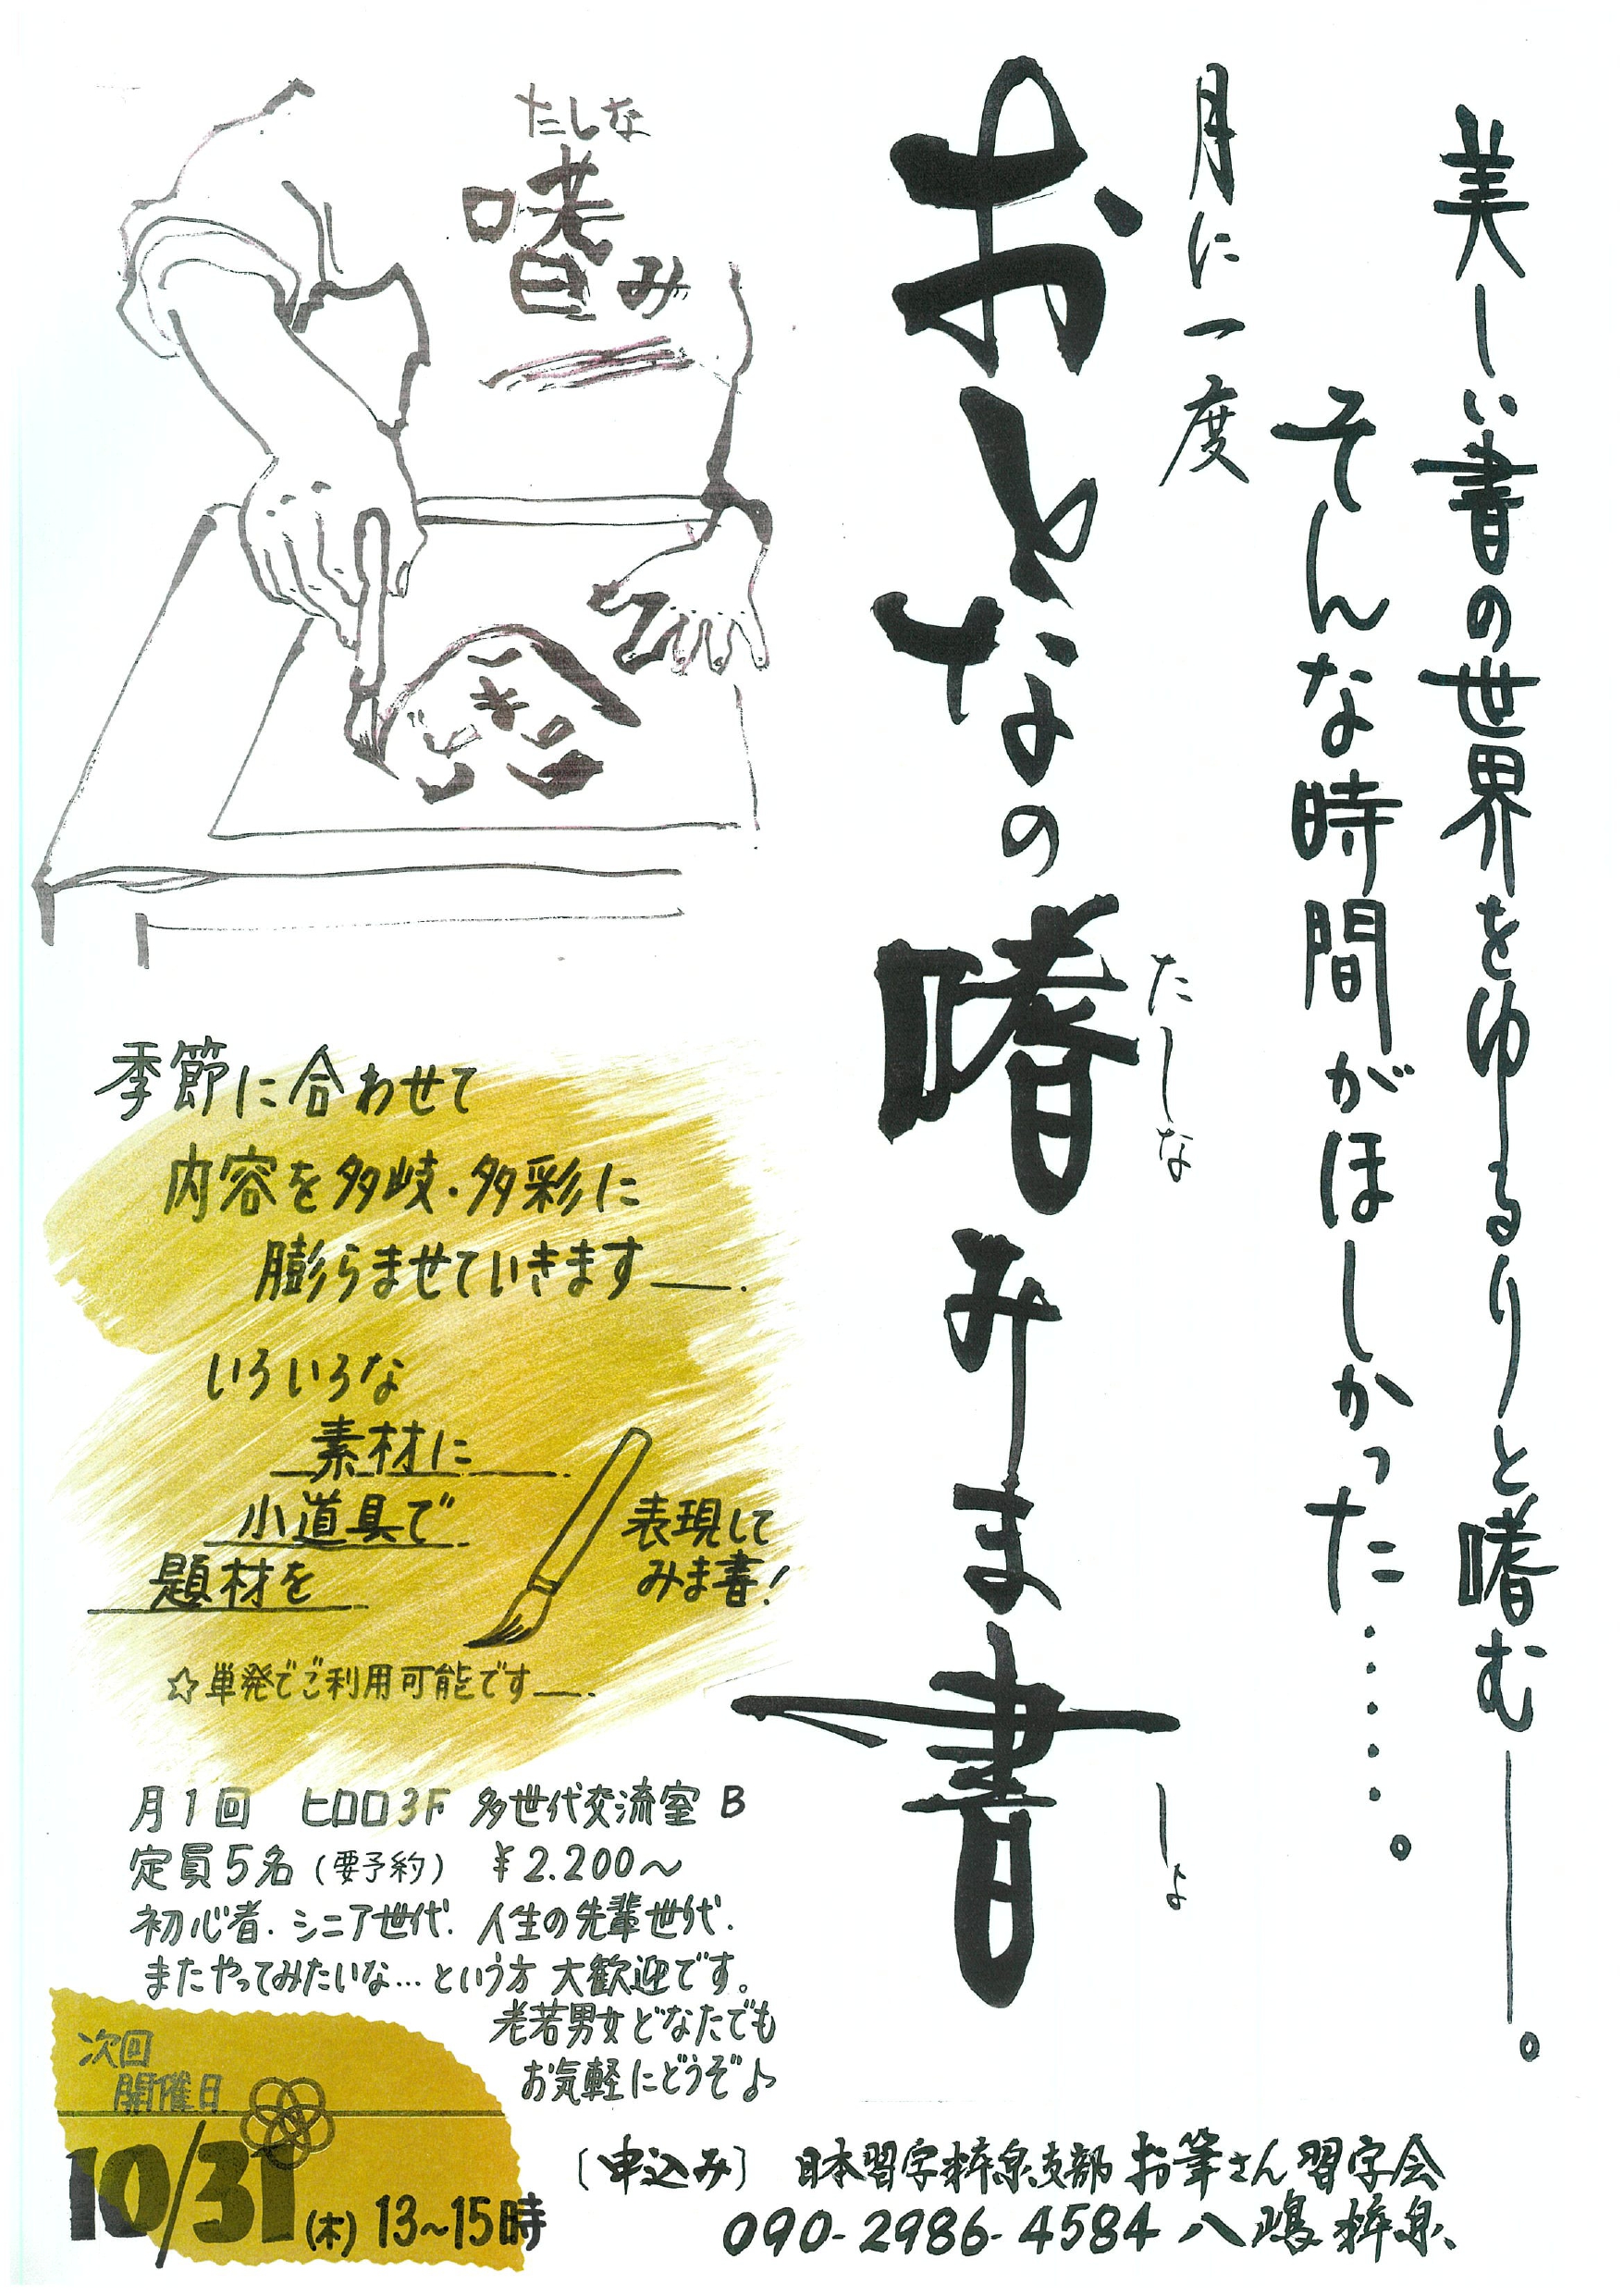 美しい書の世界をゆるりと嗜む――。
そんな時間がほしかった……。
月に一度
おとなの嗜みま書
たしな
しょ
たしな
嗜み
季節に合わせて
内容を多岐・多彩に
膨らませていきます――.
いろいろな
素材に
小道具で
題材を
表現して
みま書!
☆単発でご利用可能です――.
月1回 ヒロロ3F 多世代交流室 B
定員5名(要予約) ¥2.200～
初心者.シニア世代.人生の先輩世代.
またやってみたいな…という方 大歓迎です。
老若男女どなたでも
お気軽にどうぞ♪
次回
開催日
10/31(木)13~15時
〔申込み〕 日本習字梓泉支部 お筆さん習字会
090-2986-4584 八嶋 梓泉